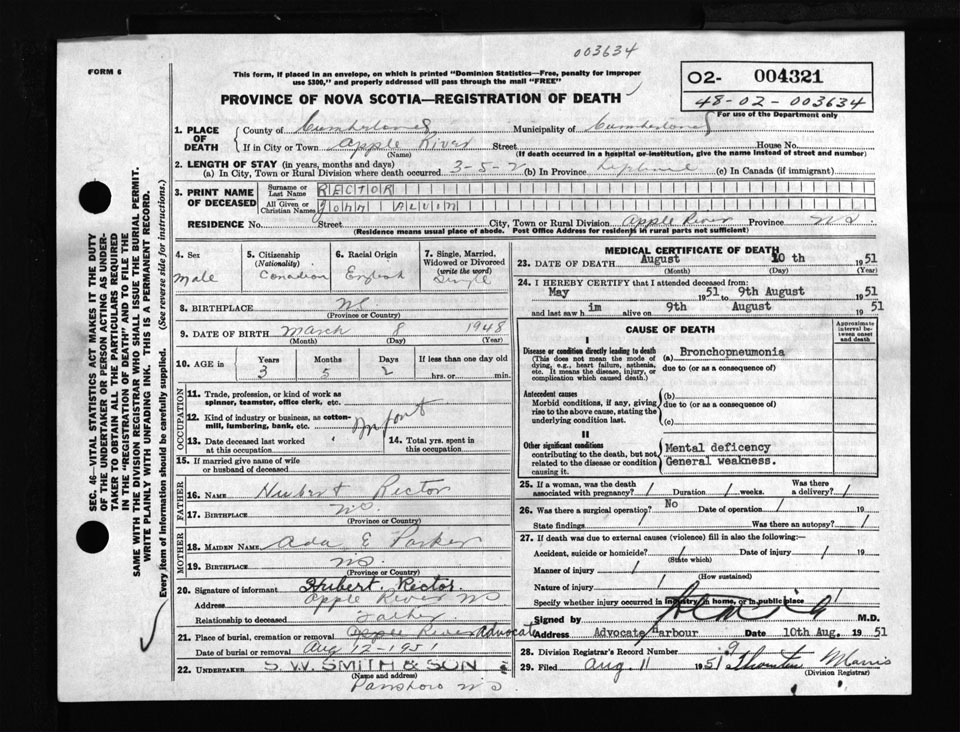 003634
FORM 6
This form, if placed in an envelope, on which is printed "Dominion Statistics—Free, penalty for improper
use $300," and properly addressed will pass through the mail "FREE"
O2- 004321
48-02-003634
For use of the Department only
PROVINCE OF NOVA SCOTIA—REGISTRATION OF DEATH
1. PLACE OF DEATH
County of Cumberland Municipality of Cumberland
If in City or Town Apple River Street House No.
(Name) (If death occurred in a hospital or institution, give the name instead of street and number)
2. LENGTH OF STAY (in years, months and days)
(a) In City, Town or Rural Division where death occurred 3-5-2 (b) In Province Lifetime (c) In Canada (if immigrant)
3. PRINT NAME OF DECEASED
Surname or Last Name RECTOR
All Given or Christian Names John Alvin
RESIDENCE No. Street City, Town or Rural Division Apple River Province N.S.
(Residence means usual place of abode. Post Office Address for residents in rural parts not sufficient)
4. Sex
Male
5. Citizenship (Nationality)
Canadian
6. Racial Origin
English
7. Single, Married, Widowed or Divorced (write the word)
Single
8. BIRTHPLACE NS
(Province or Country)
9. DATE OF BIRTH March 8 1948
(Month) (Day) (Year)
10. AGE in Years Months Days If less than one day old
3 5 2 hrs. or min.
OCCUPATION
11. Trade, profession, or kind of work as spinner, teamster, office clerk, etc.
12. Kind of industry or business, as cotton-mill, lumbering, bank, etc. Infant
13. Date deceased last worked at this occupation
14. Total yrs. spent in this occupation
15. If married give name of wife or husband of deceased
FATHER
16. NAME Hubert Rector
17. BIRTHPLACE N.S.
(Province or Country)
MOTHER
18. MAIDEN NAME Ada E Parker
19. BIRTHPLACE N.S.
(Province or Country)
20. Signature of informant Hubert. Rector.
Address Apple River NS
Relationship to deceased Father
21. Place of burial, cremation or removal Apple River Advocate
Date of burial or removal Aug 12-1951
22. UNDERTAKER S. W. SMITH & SON
(Name and address)
Parrsboro N S
MEDICAL CERTIFICATE OF DEATH
23. DATE OF DEATH August 10th 1951
(Month) (Day) (Year)
24. I HEREBY CERTIFY that I attended deceased from:
May 1951 to 9th August 1951
and last saw him alive on 9th August 1951
CAUSE OF DEATH
Approximate interval between onset and death
I
Disease or condition directly leading to death
(This does not mean the mode of dying, e.g., heart failure, asthenia, etc. It means the disease, injury, or complication which caused death.)
(a) Bronchopneumonia
due to (or as a consequence of)
Antecedent causes
Morbid conditions, if any, giving rise to the above cause, stating the underlying condition last.
(b)
due to (or as a consequence of)
(c)
II
Other significant conditions
contributing to the death, but not related to the disease or condition causing it.
Mental deficency
General weakness.
25. If a woman, was the death associated with pregnancy? / Duration / weeks. Was there a delivery? /
26. Was there a surgical operation? No Date of operation / 19
State findings / Was there an autopsy? /
27. If death was due to external causes (violence) fill in also the following:—
Accident, suicide or homicide? / Date of injury / 19
(State which)
Manner of injury /
(How sustained)
Nature of injury /
Specify whether injury occurred in industry, in home, or in public place /
Signed by M.D.
Address Advocate Harbour Date 10th Aug. 1951
28. Division Registrar's Record Number 9
29. Filed Aug 11 1951 Thornton Morris
(Division Registrar)
SEC. 46—VITAL STATISTICS ACT MAKES IT THE DUTY
OF THE UNDERTAKER OR PERSON ACTING AS UNDER-
TAKER TO OBTAIN ALL THE PARTICULARS REQUIRED
IN THE "REGISTRATION OF DEATH" AND TO FILE THE
SAME WITH THE DIVISION REGISTRAR WHO SHALL ISSUE THE BURIAL PERMIT.
WRITE PLAINLY WITH UNFADING INK. THIS IS A PERMANENT RECORD.
Every item of information should be carefully supplied. (See reverse side for instructions.)